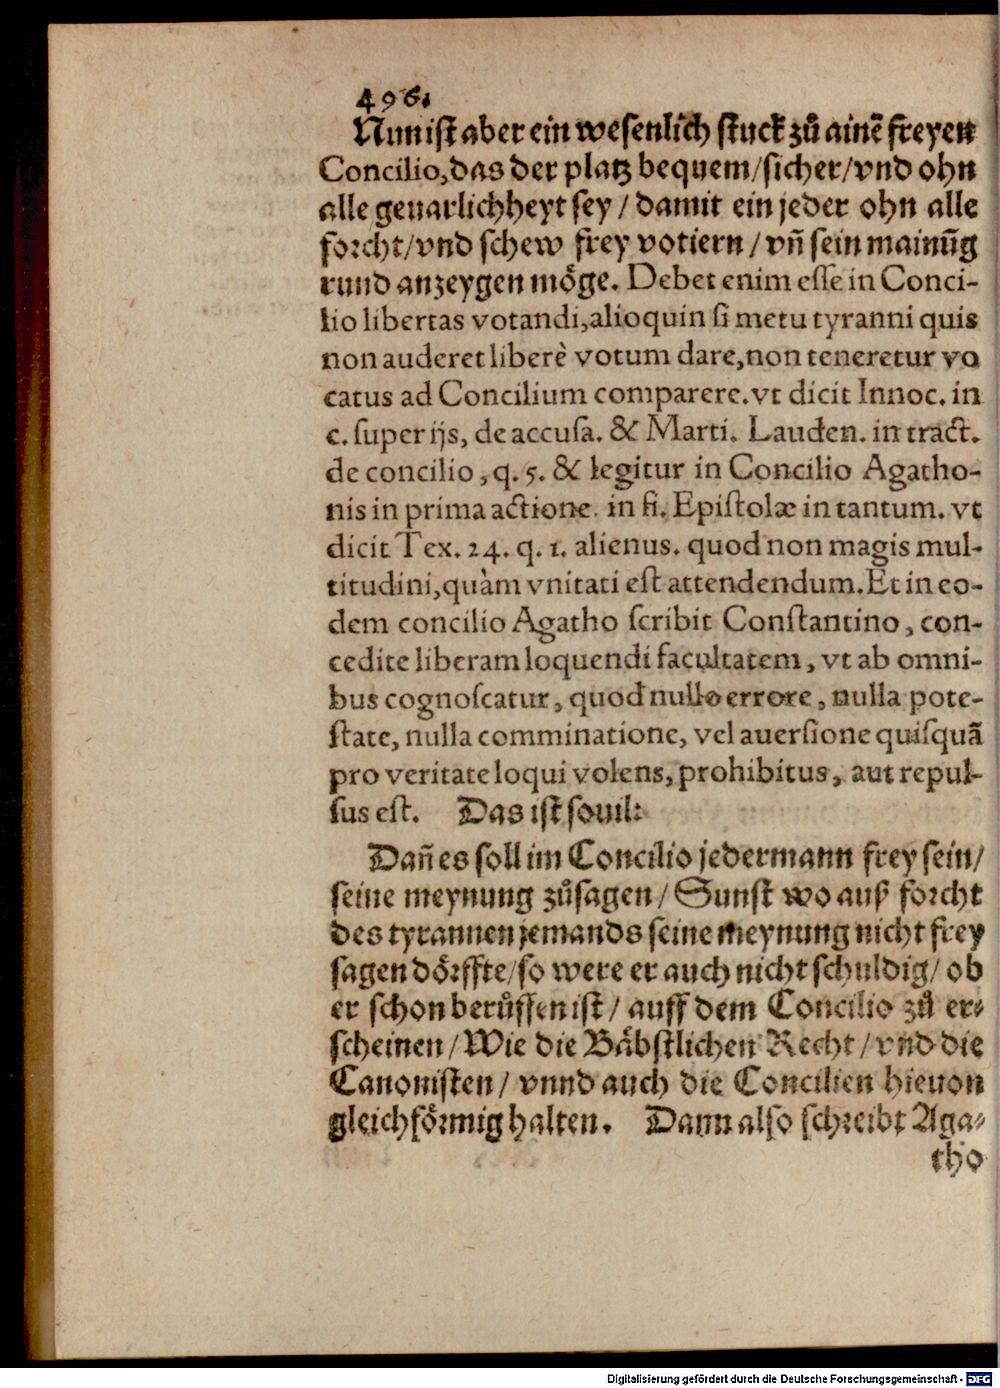 496.
Nun ist aber ein wesenlich stuck zů ainē freyen
Concilio, das der platz bequem/sicher/vnd ohn
alle geuarlichheyt sey / damit ein jeder ohn alle
forcht/vnd schew frey votiern / vñ sein mainūg
rund anzeygen möge. Debet enim esse in Conci-
lio libertas votandi, alioquin si metu tyranni quis
non auderet liberè votum dare, non teneretur vo
catus ad Concilium comparere. vt dicit Innoc. in
c. super ijs, de accusa. & Marti. Lauden. in tract.
de concilio, q. 5. & legitur in Concilio Agatho-
nis in prima actione. in fi. Epistolæ in tantum. vt
dicit Tex. 24. q. 1. alienus. quod non magis mul-
titudini, quàm vnitati est attendendum. Et in eo-
dem concilio Agatho scribit Constantino, con-
cedite liberam loquendi facultatem, vt ab omni-
bus cognoscatur, quod nullo errore, nulla pote-
state, nulla comminatione, vel auersione quisquā
pro veritate loqui volens, prohibitus, aut repul-
sus est. Das ist souil:
Dañ es soll im Concilio jedermann frey sein/
seine meynung zůsagen / Sunst wo auß forcht
des tyrannen jemands seine meynung nicht frey
sagen dörffte/so were er auch nicht schuldig/ ob
er schon berůffen ist / auff dem Concilio zů er-
scheinen / Wie die Bäbstlichen Recht / vnd die
Canonisten / vnnd auch die Concilien hieuon
gleichförmig halten. Dann also schreibt Aga-
tho
Digitalisierung gefördert durch die Deutsche Forschungsgemeinschaft - DFG